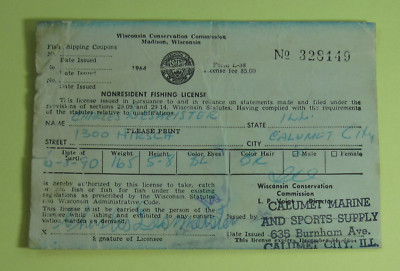 Wisconsin Conservation Commission
Madison, Wisconsin
Fish Shipping Coupons
Form L-38
Nº 328149
Date Issued
1964
License fee $5.00
Date Issued
Date Issued
NONRESIDENT FISHING LICENSE
This license issued in pursuance to and in reliance on statements made and filed under the
provisions of sections 29.09 and 29.14, Wisconsin Statutes. Having complied with the requirements of the
statutes relative to qualifications:
NAME STATE ILL
PLEASE PRINT
1300 HIRSCH CALUMET City
STREET CITY
Date of Birth Weight Height Color Eyes Color Hair Male Female
165 BL BR
is hereby authorized for this license to take, catch
or fish for fish under the existing
regulations as prescribed by the Wisconsin Statutes
and Wisconsin Administrative Code.
This license must be carried on the person of owner
while fishing and exhibited to any conservation
warden on demand.
Wisconsin Conservation
Commission
L. P. Voigt, Director
X
Signature of Licensee
CALUMET MARINE
AND SPORTS SUPPLY
635 Burnham Ave.
CALUMET CITY, ILL.
This license expires December 31,